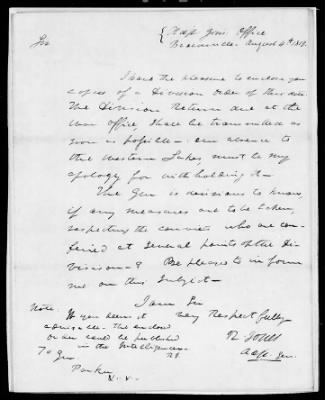 { Adjt Genl Office
Brownville August 4th 1819.
Sir
I have the pleasure to enclose you
copies of a Division Order of this date
The Division Return due at the
War office, shall be transmitted as
soon as possible - our absence to
the Western Lakes must be my
apology for withholding it -
The Gen is desirous to know,
if any measures are to be taken,
respecting the convicts who are con-
fined at several points of the Di-
vision -? Be pleased to inform
me on this subject -
I am Sir
very Respectfully
R Jones
Adjt. Gen.
Note. If you deem it
advisable - the enclosed
order could be published
in the Intelligencer
To Gen
Parker